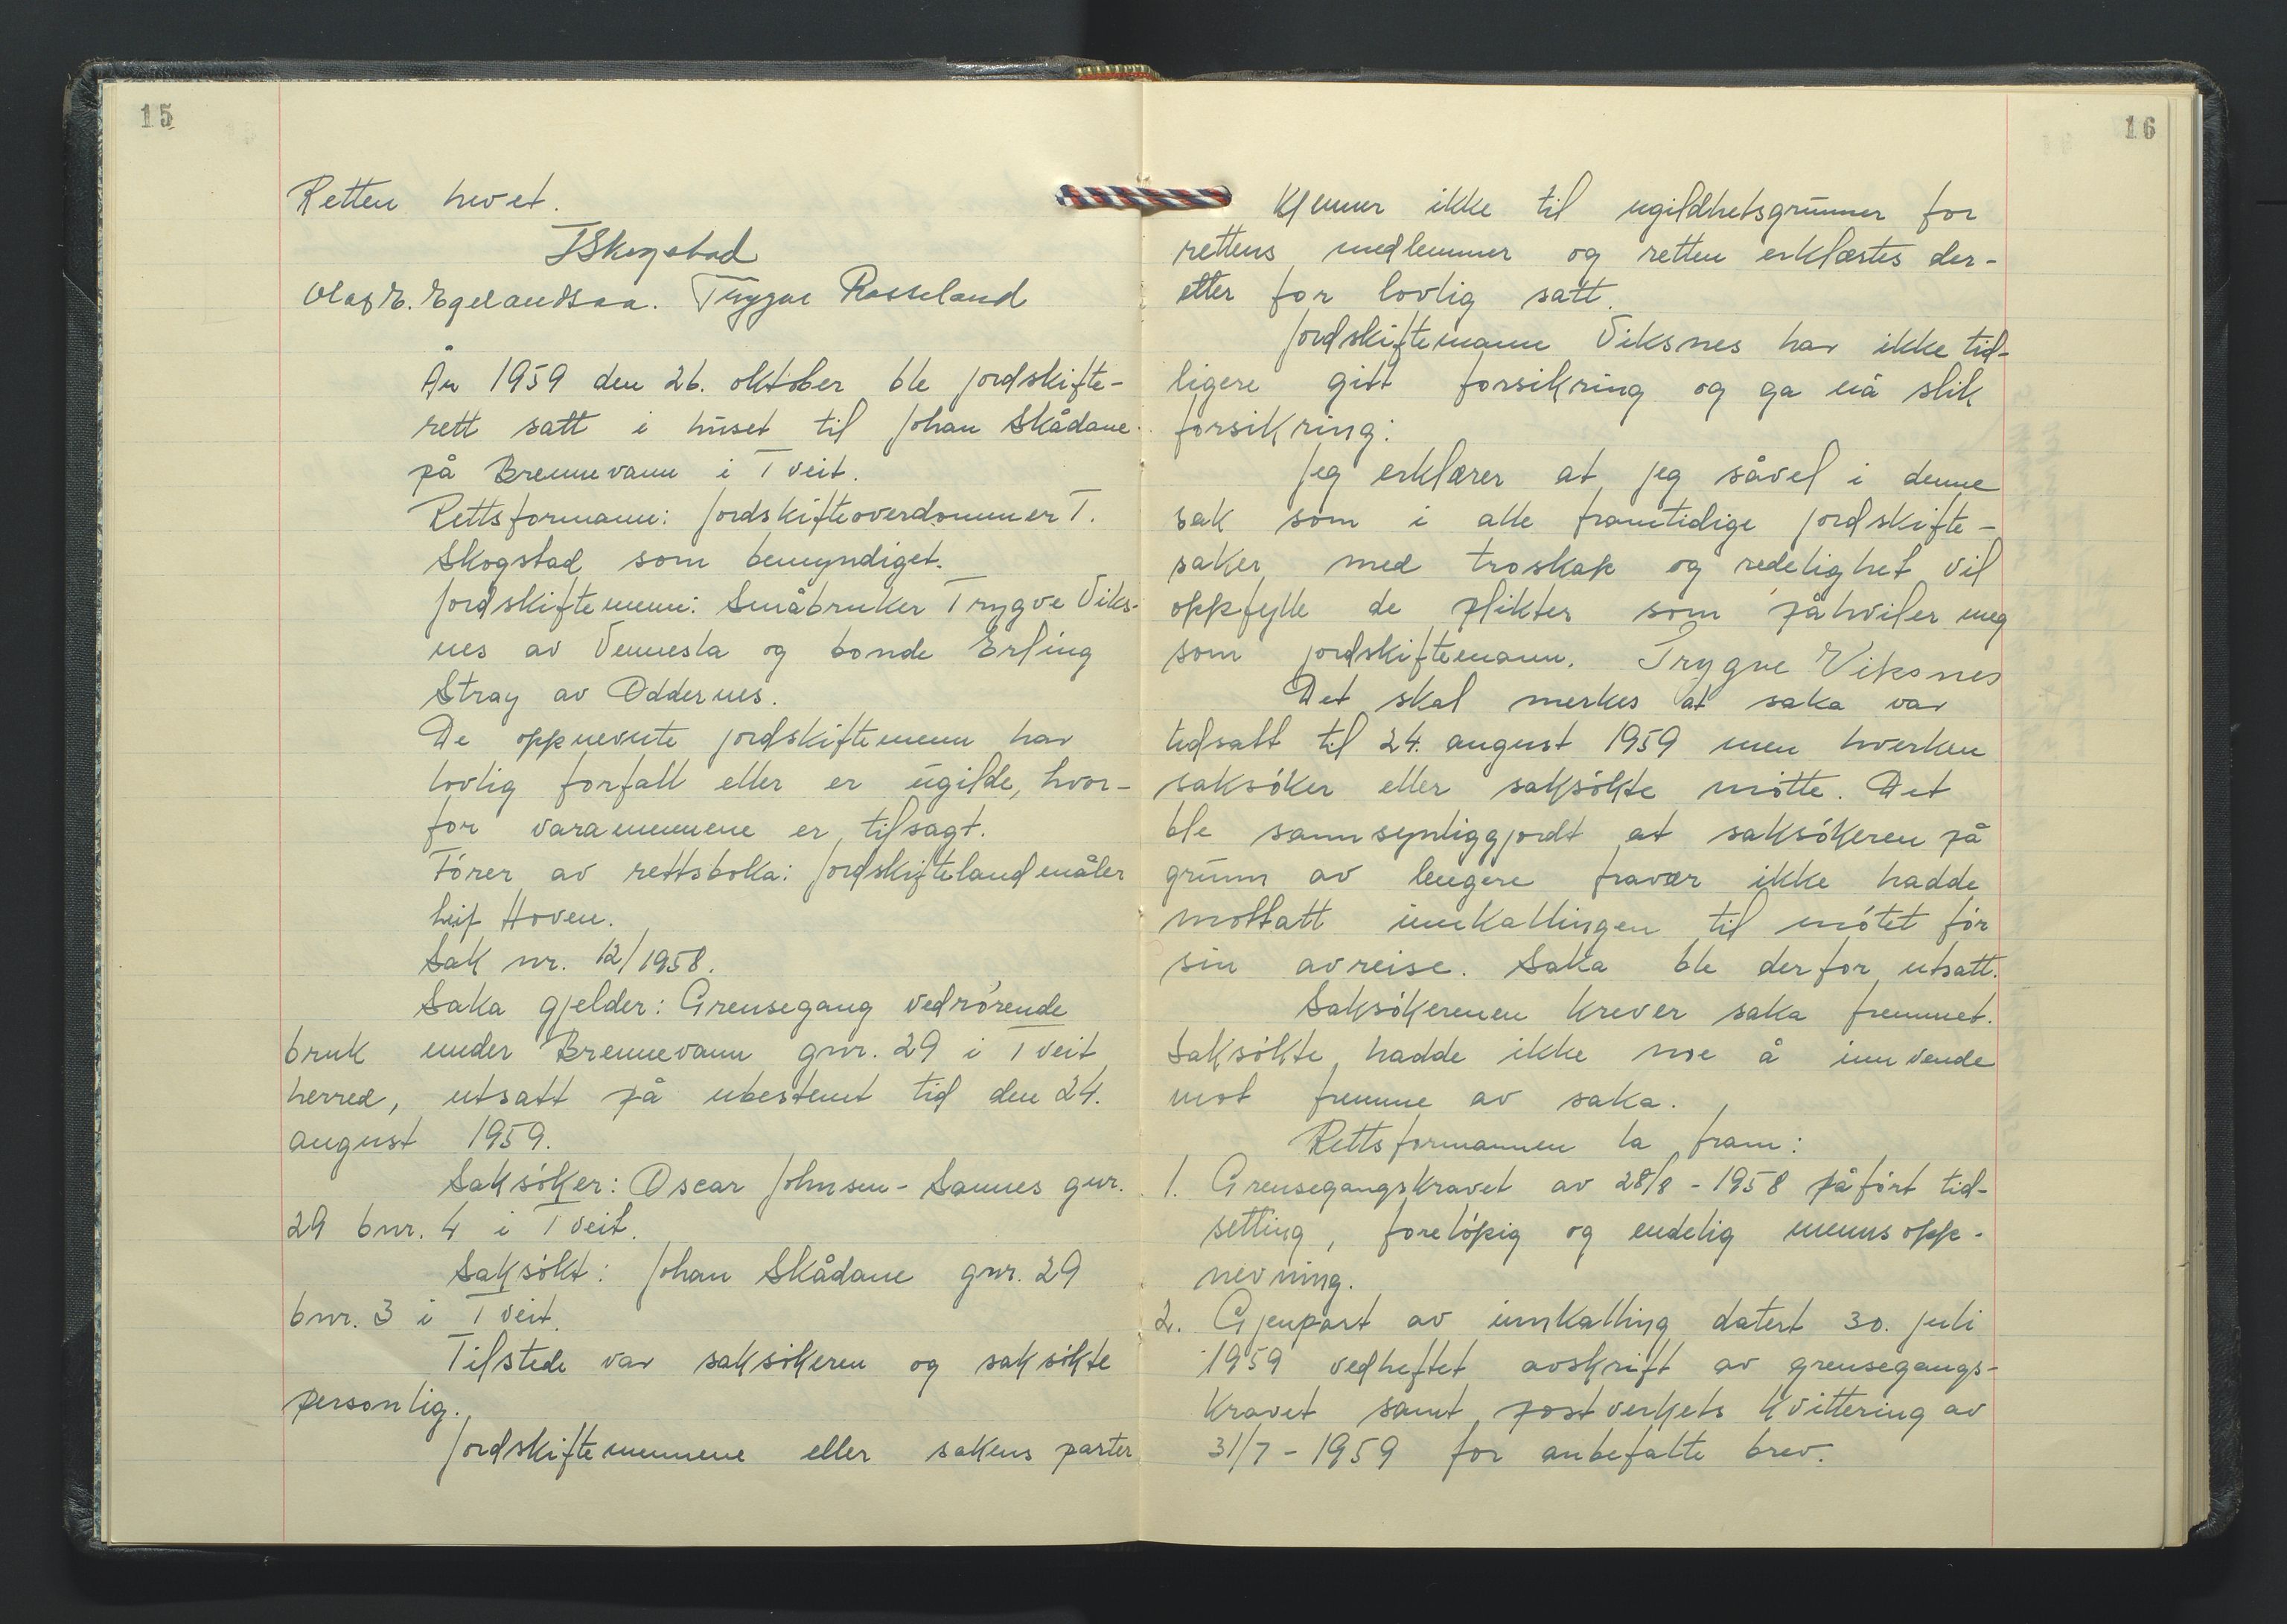 15
Retten hevet.
TSkogstad
Olaf E. Egelandsaa. Trygve Rosseland
År 1959 den 26. oktober ble jordskifte-
rett satt i huset til Johan Skådane
på Brennevann i Tveit.
Rettsformann: Jordskifteoverdommer T.
Skogstad som bemyndiget.
Jordskiftemenn: Småbruker Trygve Viks-
nes av Vennesla og bonde Erling
Stray av Oddernes.
De oppnevnte jordskiftemenn har
lovlig forfall eller er ugilde, hvor-
for varamennene er tilsagt.
Fører av rettsboka: Jordskiftelandmåler
Leif Hoven.
Sak nr. 12/1958.
Saka gjelder: Grensegang vedrørende
bruk under Brennevann gnr. 29 i Tveit
herred, utsatt på ubestemt tid den 24.
august 1959.
Saksøker: Oscar Johnsen - Sannes gnr.
29 bnr. 4 i Tveit.
Saksøkt: Johan Skådane gnr. 29
bnr. 3 i Tveit.
Tilstede var saksøkeren og saksøkte
personlig.
Jordskiftemennene eller sakens parter
16
kjenner ikke til ugildhetsgrunner for
rettens medlemmer og retten erklærtes der-
etter for lovlig satt.
Jordskiftemann Viksnes har ikke tid-
ligere gitt forsikring og ga nå slik
forsikring:
Jeg erklærer at jeg såvel i denne
sak som i alle framtidige jordskifte-
saker med troskap og redelighet vil
oppfylle de plikter som påhviler meg
som jordskiftemann. Trygve Viksnes
Det skal merkes at saka var
tidsatt til 24. august 1959 men hverken
saksøker eller saksøkte møtte. Det
ble sannsynliggjordt at saksøkeren på
grunn av lengere fravær ikke hadde
mottatt innkallingen til møtet før
sin avreise. Saka ble derfor utsatt.
Saksøkerenen krever saka fremmet.
Saksøkte hadde ikke noe å innvende
mot fremme av saka.
Rettsformannen la fram:
1. Grensegangskravet av 28/8 - 1958 påført tid-
setting, foreløpig og endelig mennsopp-
nevning.
2. Gjenpart av innkalling datert 30. juli
1959 vedheftet avskrift av grensegangs-
kravet samt postverkets kvittering av
31/7 - 1959 for anbefalte brev.